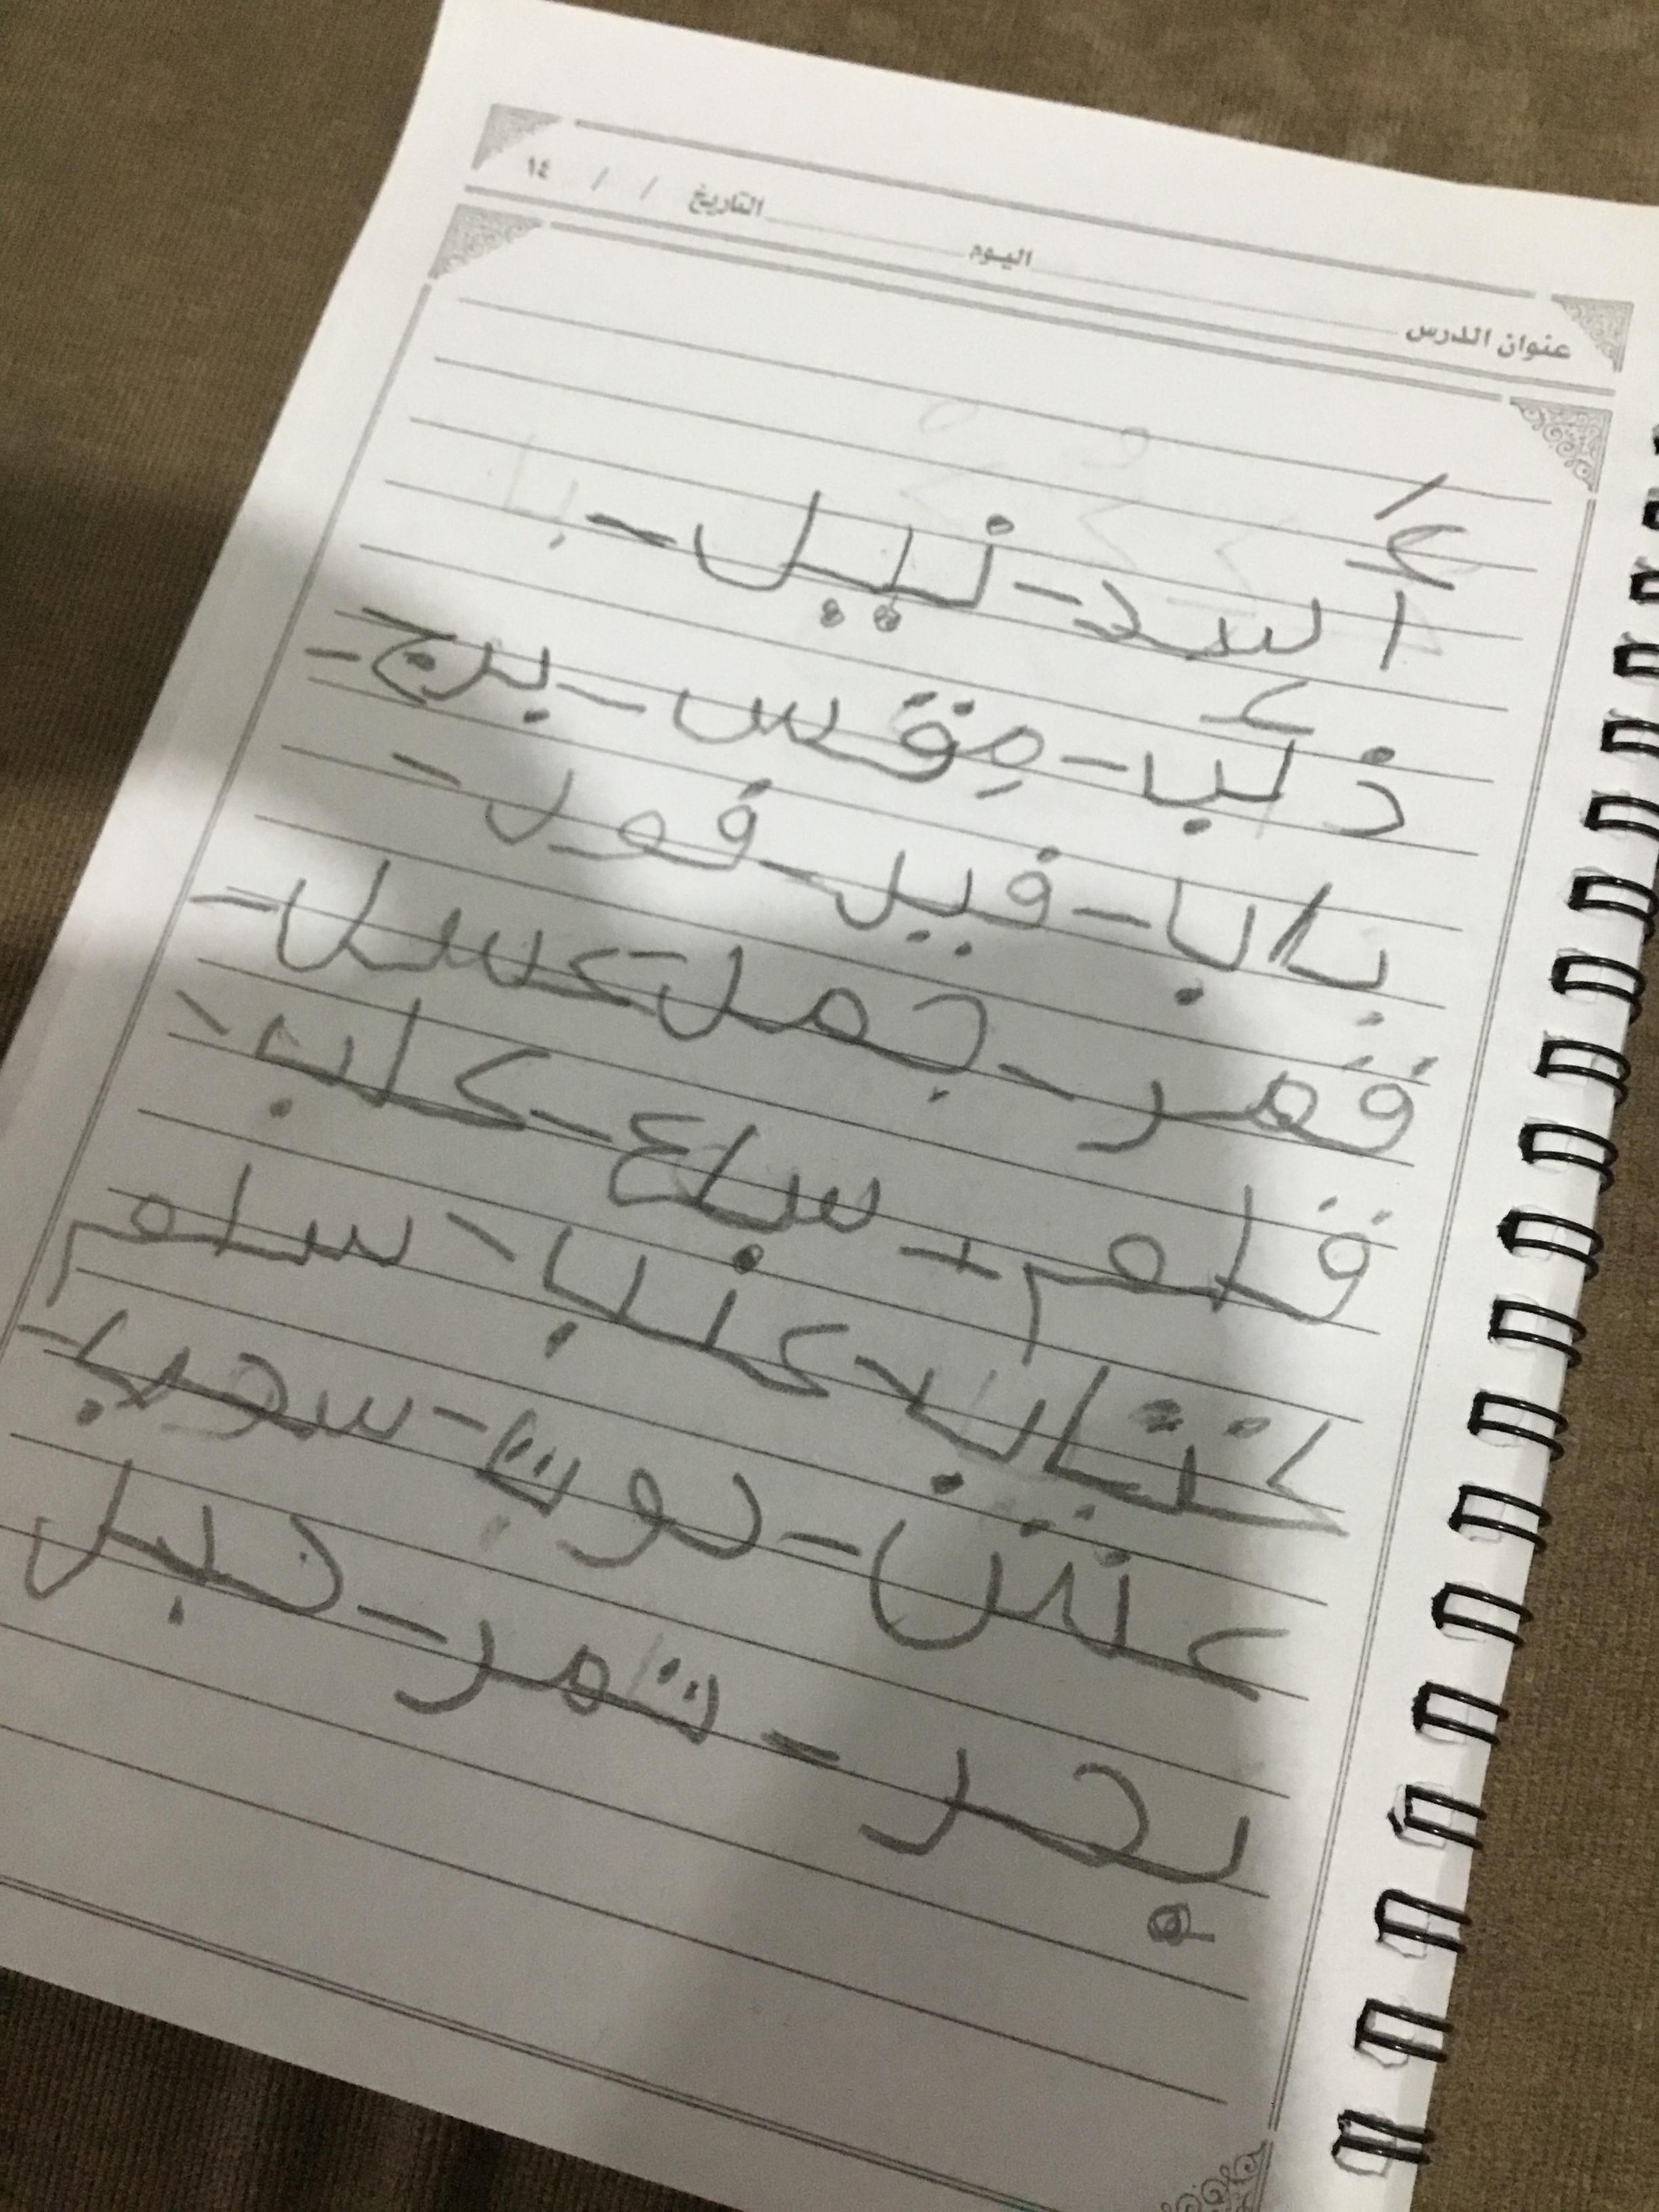 التاريخ / / ١٤
اليوم
عنوان الدرس
أسد - نييل -
ذئب - مِقَس - برج -
باب - فيل - فول -
قمر - جمل - عسل -
قلم - سباع - كلب -
كتاب - عنب - سلم
عنش - توت - سحب -
بحر - تمر - حبل